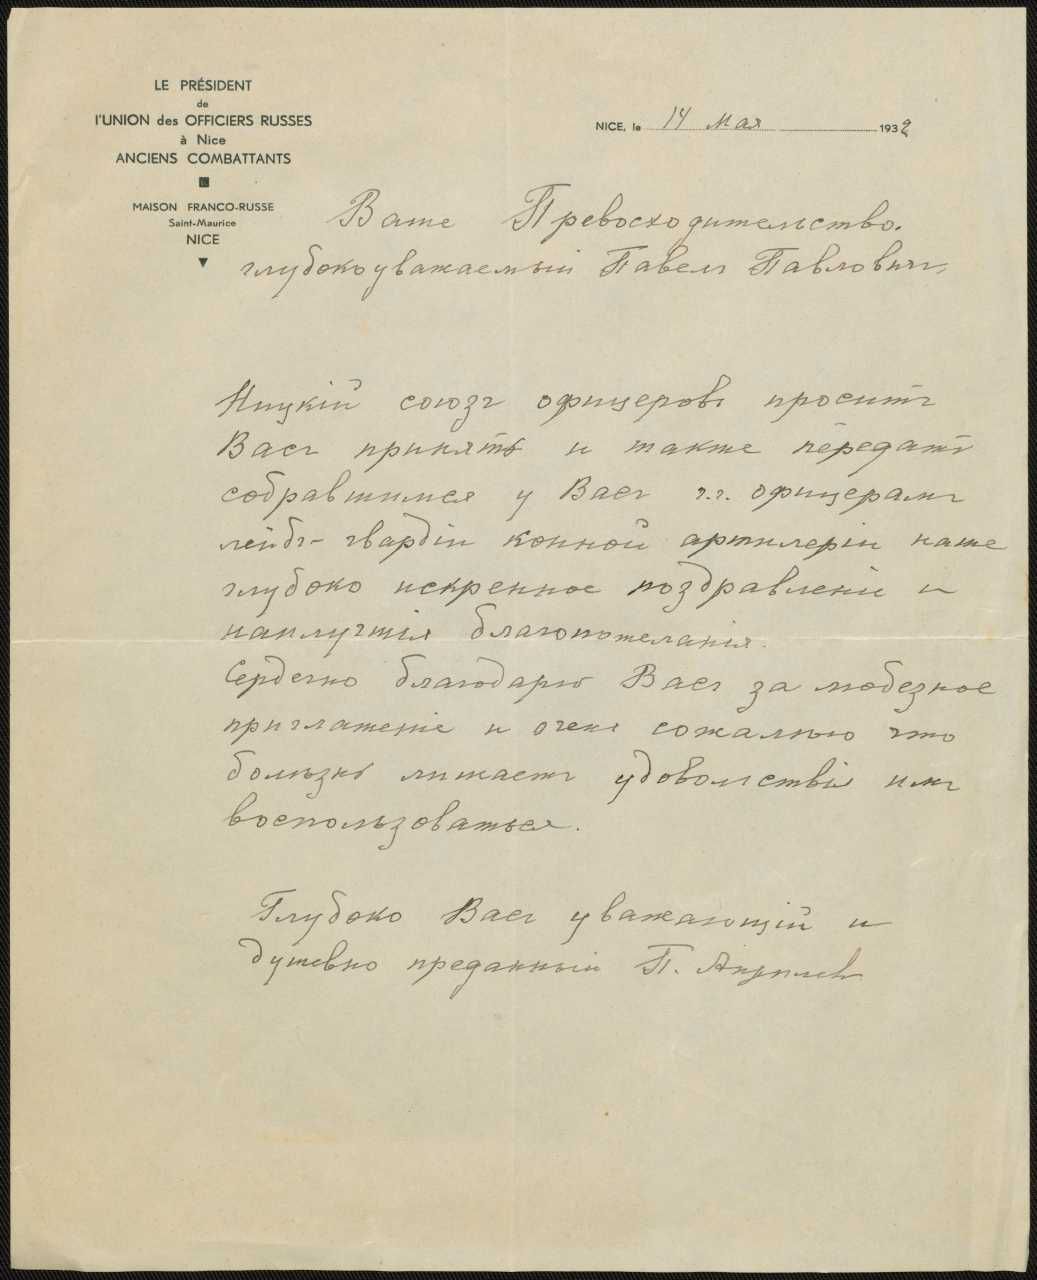 LE PRÉSIDENT
de
l'UNION des OFFICIERS RUSSES
à Nice
ANCIENS COMBATTANTS
MAISON FRANCO-RUSSE
Saint-Maurice
NICE
NICE, le 14 Мая 1932
Ваше Превосходительство.
глубокоуважаемый Павелъ Павловичъ,
Ницкій союзъ офицеровъ проситъ
Васъ принять и также передать
собравшимся у Васъ г.г. офицерамъ
лейбъ-гвардіи конной артилеріи наше
глубоко искренное поздравленіе и
наилучшія благопожеланія.
Сердечно благодарю Васъ за любезное
приглашеніе и очень сожалѣю что
болѣзнь лишаетъ удовольствія имъ
воспользоваться.
Глубоко Васъ уважающій и
душевно преданный П.